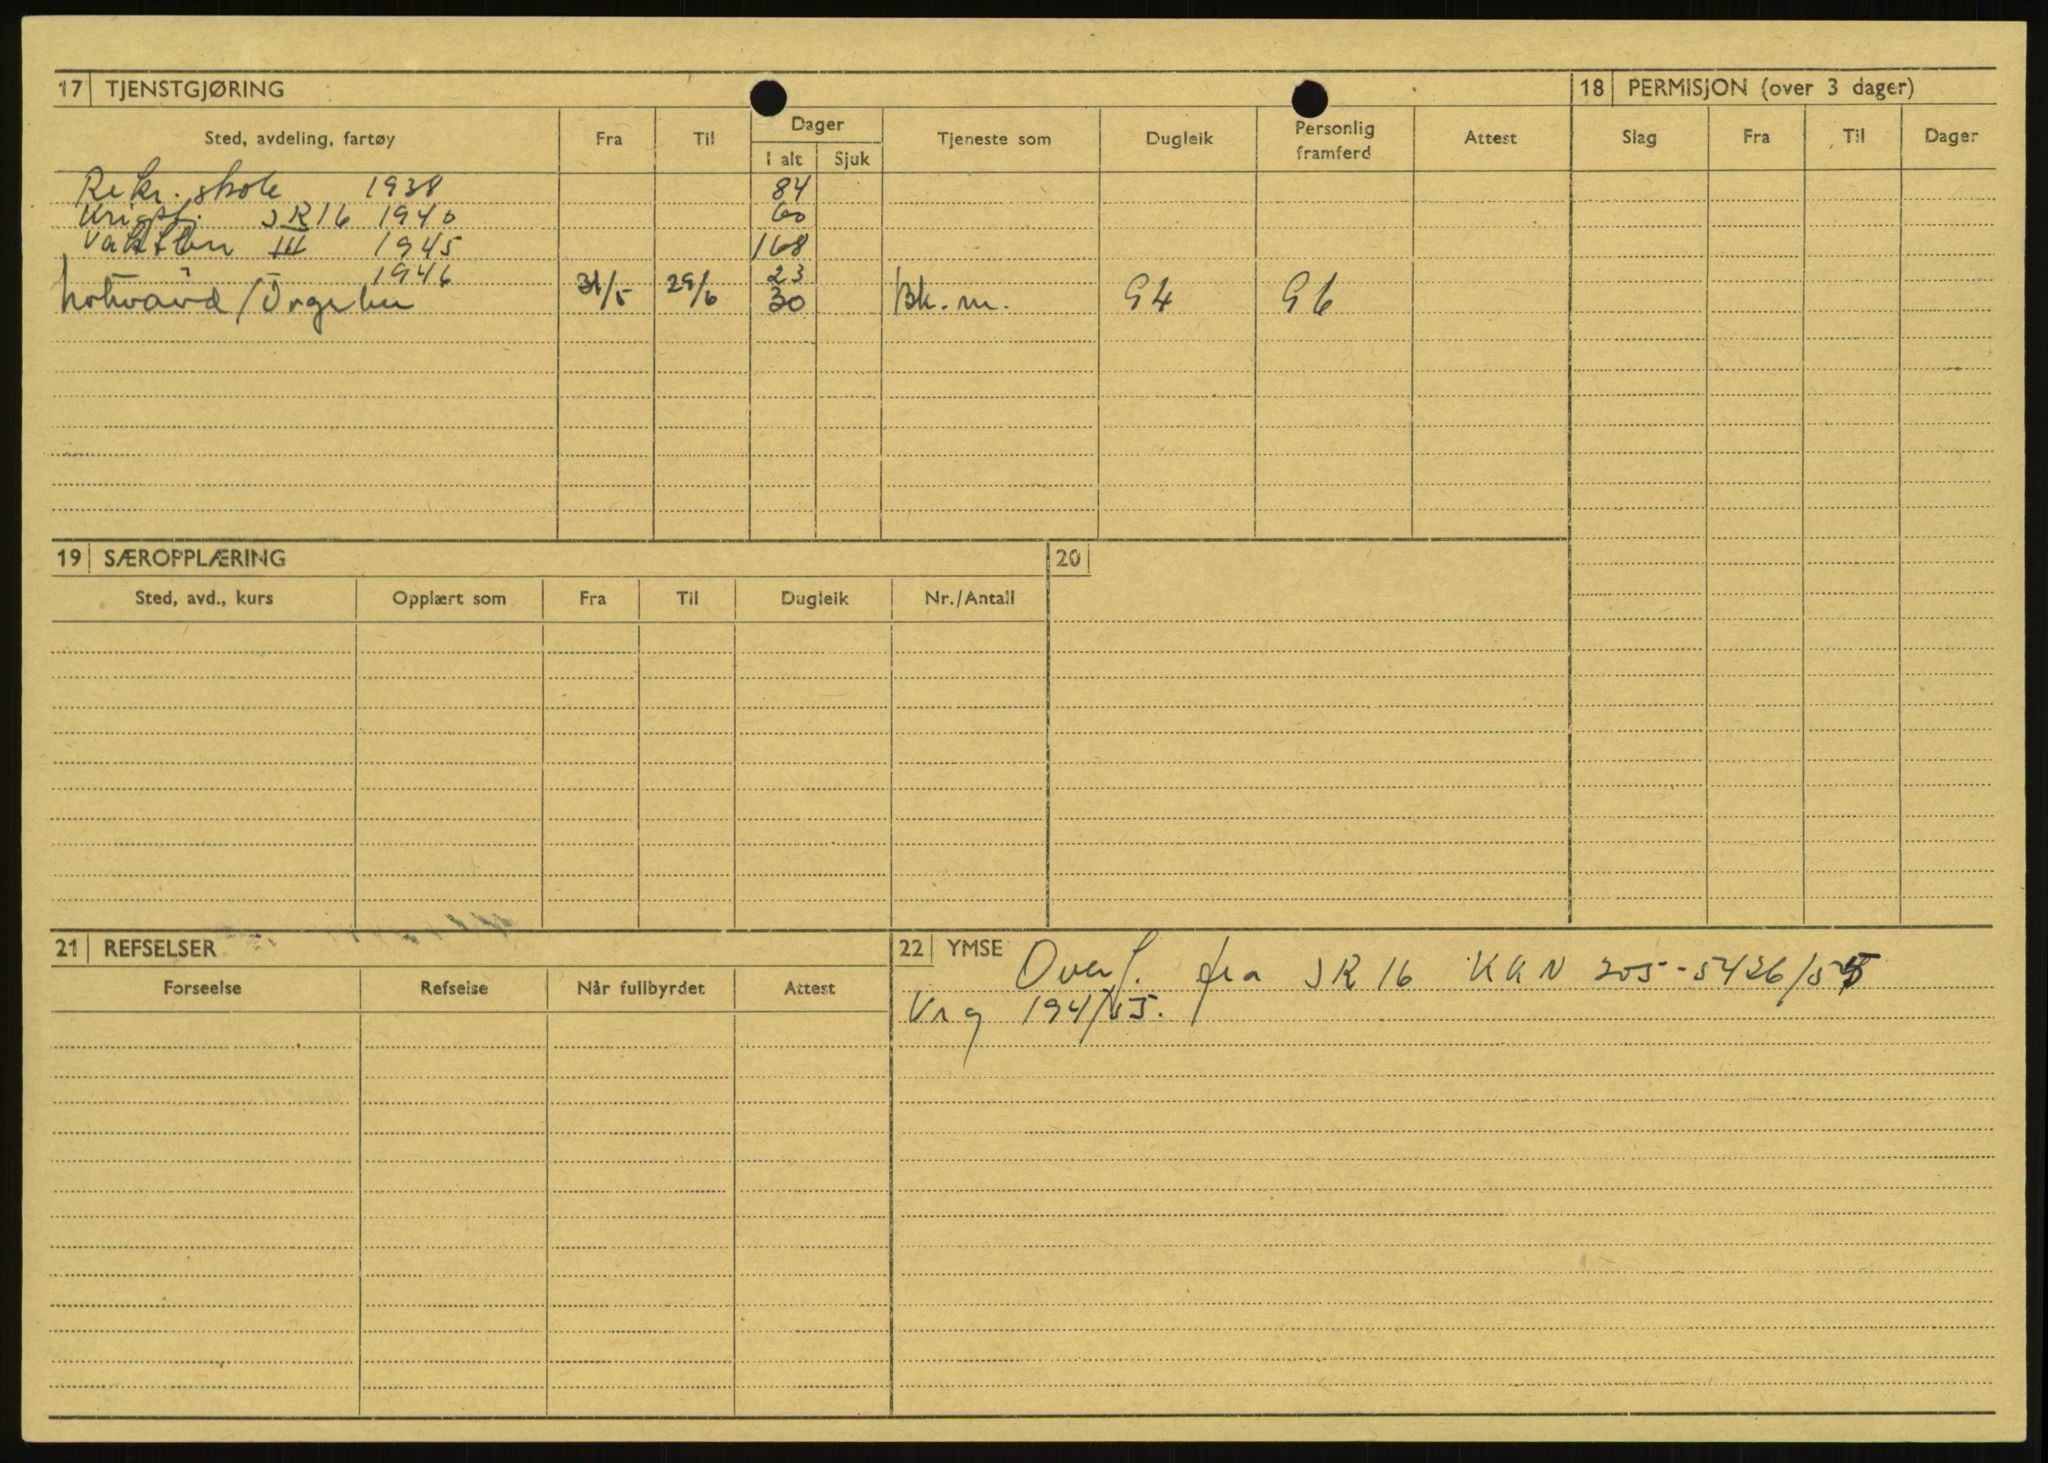 17 TJENSTGJØRING
18 PERMISJON (over 3 dager)
Sted, avdeling, fartøy Fra Til Dager Tjeneste som Dugleik Personlig framferd Attest Slag Fra Til Dager
I alt Sjuk
Rekr. skole 1938 84
Krigstj. JR 16 1940 60
Vaktbn III 1945 168
1946 23
31/5 29/6 30 Bk. m. G4 G6
19 SÆROPPLÆRING
20
Sted, avd., kurs Opplært som Fra Til Dugleik Nr./Antall
21 REFSELSER
22 YMSE Overf. fra JR 16 KKN 205-5426/55
Forseelse Refselse Når fullbyrdet Attest
Vrg 194/55.